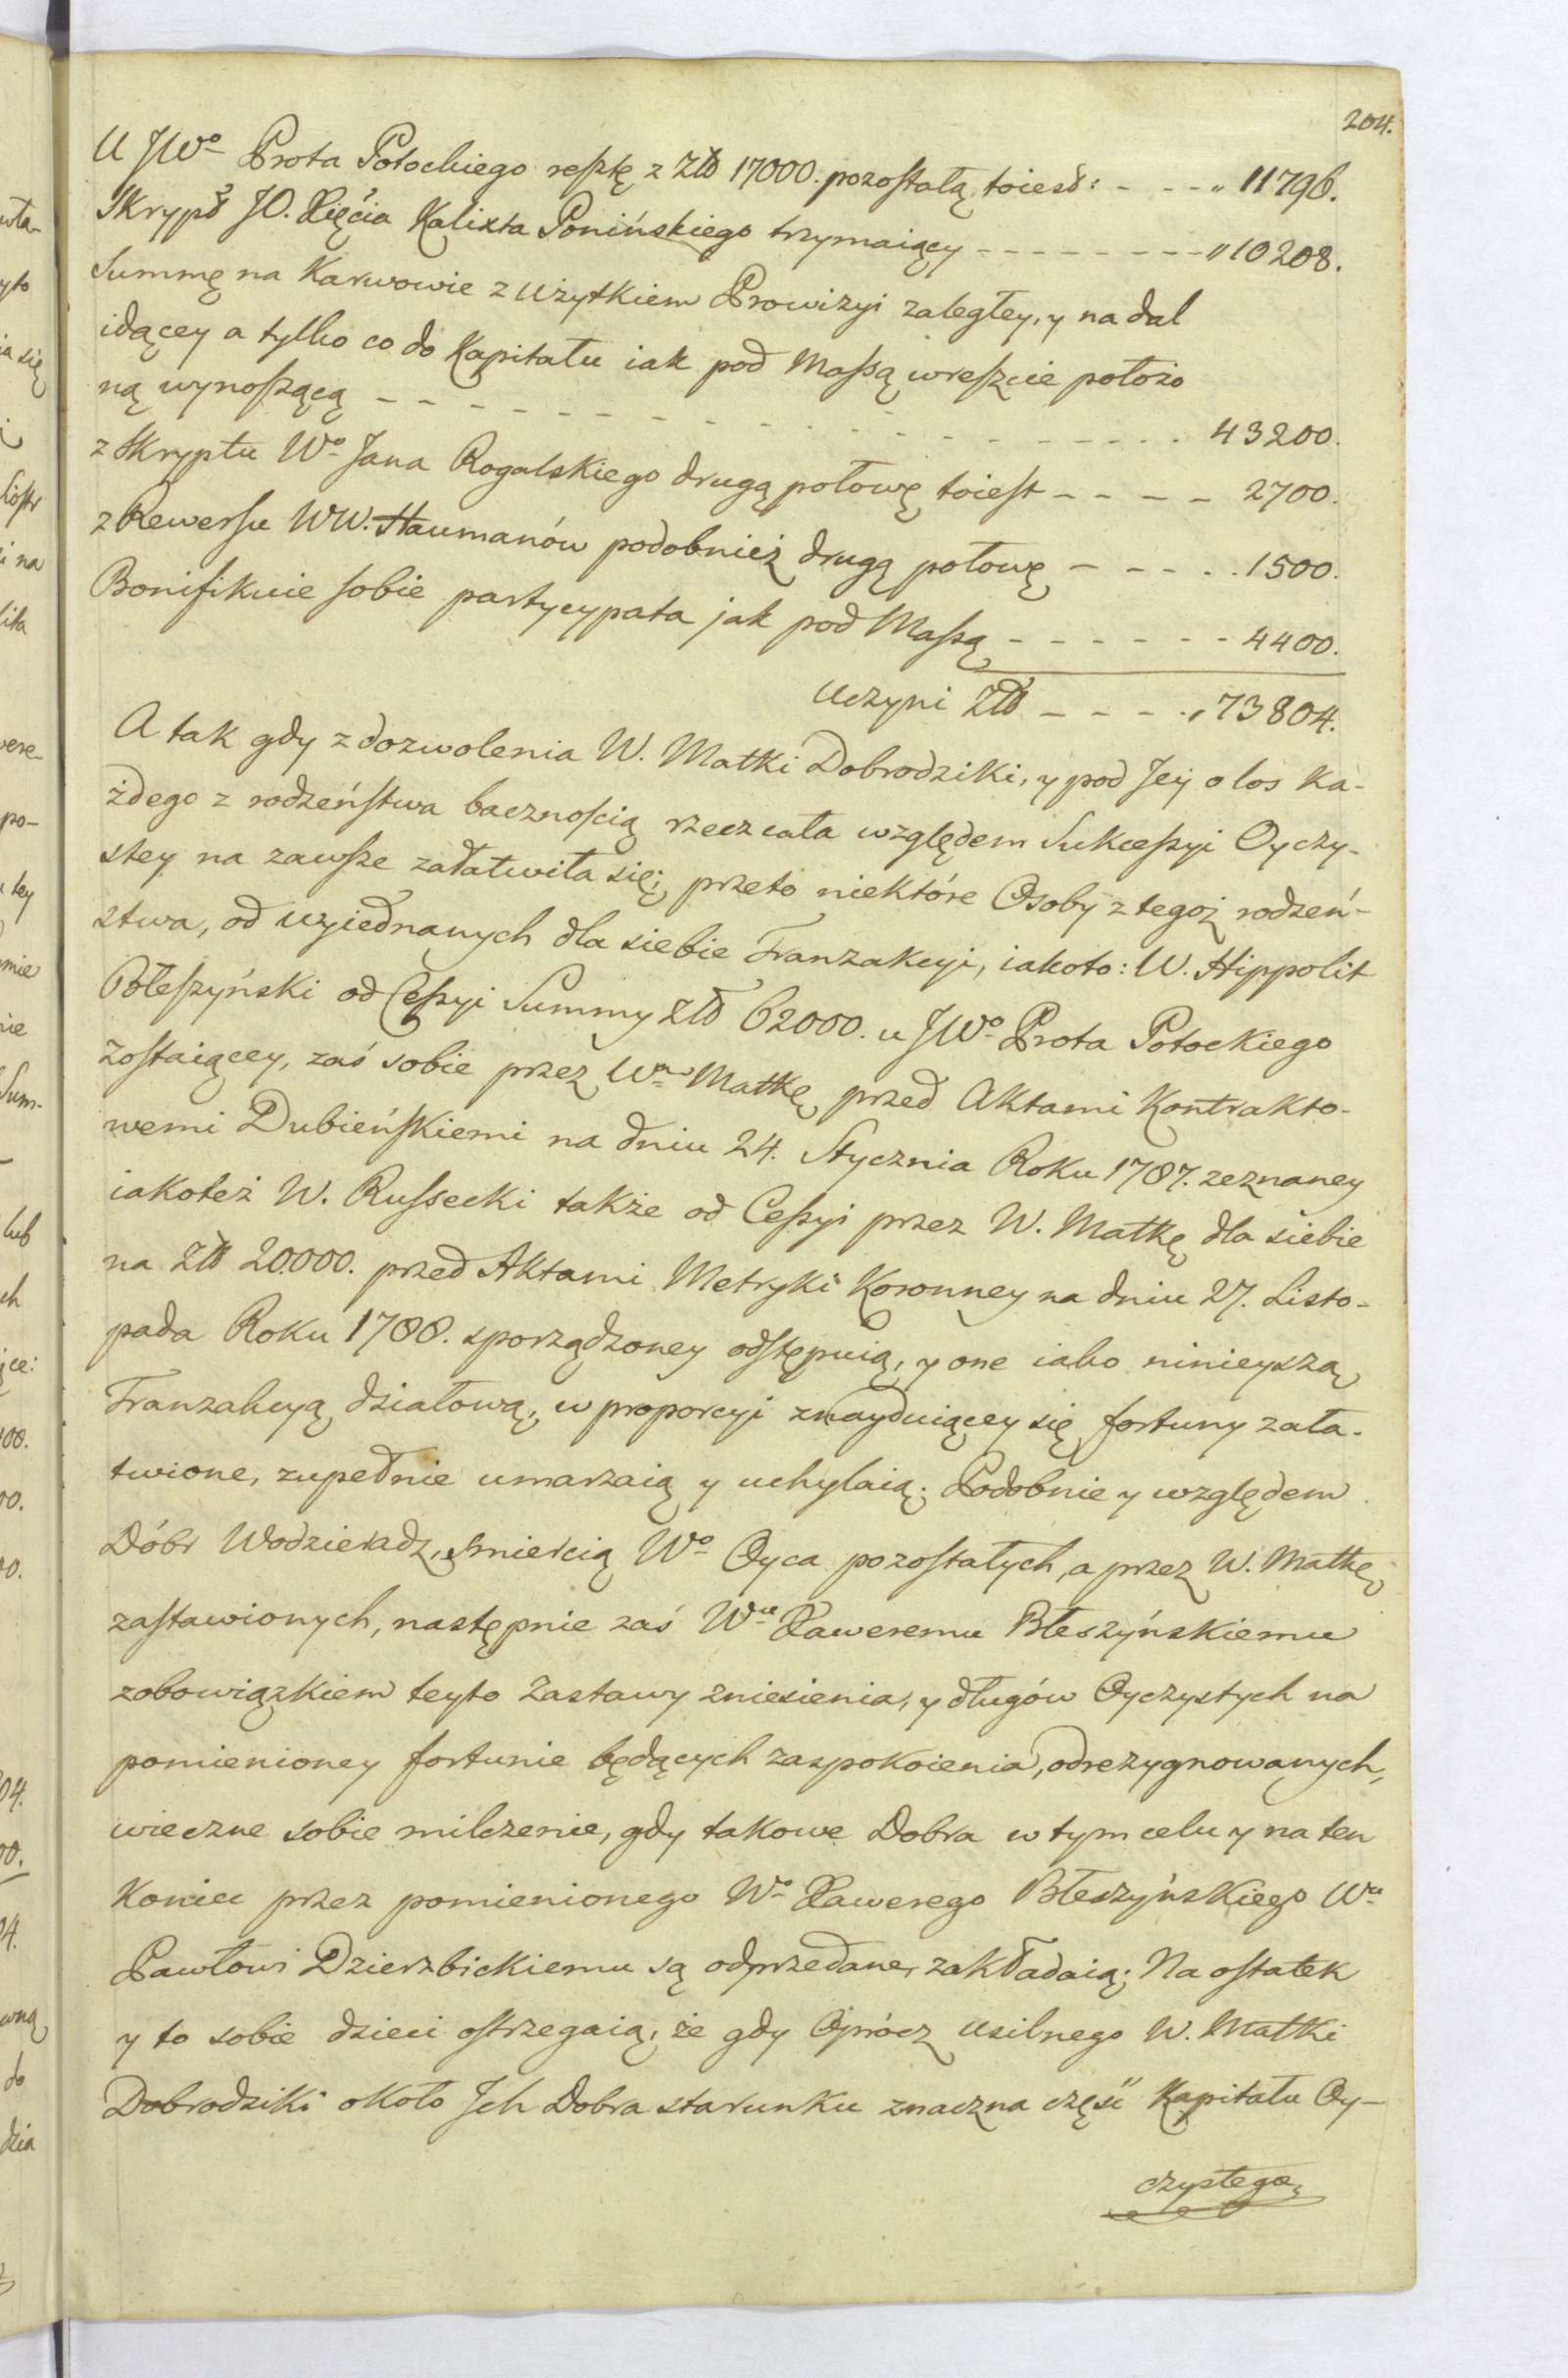 204.
U JWo Prota Potockiego resztę z Złł 17000. pozostałą toiest: - - - „ 11796.
Skrypt JO. Xięcia Kalixta Ponińskiego trzymaiący - - - - - - - - „ 10208.
Summę na Karwowie z użytkiem Prowizyi zaległey, y na dal
idącey a tylko co do Kapitału iak pod Massą wreszcie położo
ną wynoszącą - - - - - - - - - - - - - - - - - - 43200.
z Skryptu Wo Jana Rogalskiego drugą połowę toiest - - - - 2700.
z Rewersu WW. Haumanów podobnież drugą połowę - - - - - 1500.
Bonifikuie sobie partycypata jak pod Massą - - - - - - 4400.
Uczyni Złł - - - - „ 73804.
A tak gdy z dozwolenia W. Matki Dobrodziki, y pod Jey o los ka-
żdego z rodzeństwa bacznością rzecz cała względem Sukcessyi Oyczy-
stey na zawsze załatwiła się; przeto niektóre Osoby z tegoż rodzeń-
stwa, od uziednanych dla siebie Tranzakcyi, iakoto: W. Hippolit
Błeszyński od Cessyi Summy Złł 62000. u JWo Prota Potockiego
zostaiącey, zaś sobie przez Wą Matkę przed Aktami Kontrakto-
wemi Dubieńskiemi na dniu 24. Stycznia Roku 1787. zeznaney
iakoteż W. Russecki także od Cessyi przez W. Matkę dla siebie
na Złł 20.000. przed Aktami Metryki Koronney na dniu 27. Listo-
pada Roku 1788. sporządzoney odstępuią, y one iako ninieyszą
Tranzakcyą działową, w proporcyi znayduiącey się fortuny zała-
twione, zupełnie umarzaią y uchylaią; Podobnie y względem
Dóbr Wodzieradz, śmiercią Wo Oyca pozostałych, a przez W. Matkę
zastawionych, następnie zaś Wu Xaweremu Błeszyńskiemu
z obowiązkiem teyto Zastawy zniesienia, y długów Oyczystych na
pomienioney fortunie będących zaspokoienia, odrezygnowanych,
wieczne sobie milczenie, gdy takowe Dobra w tym celu y na ten
koniec przez pomienionego Wo Xawerego Błeszyńskiego Wu
Pawłowi Dzierzbickiemu są odprzedane, zakładaią; Na ostatek
y to sobie dzieci ostrzegaią, że gdy Oprócz usilnego W. Matki
Dobrodziki około Jch Dobra starunku znaczna część Kapitału Oy-
czystego,